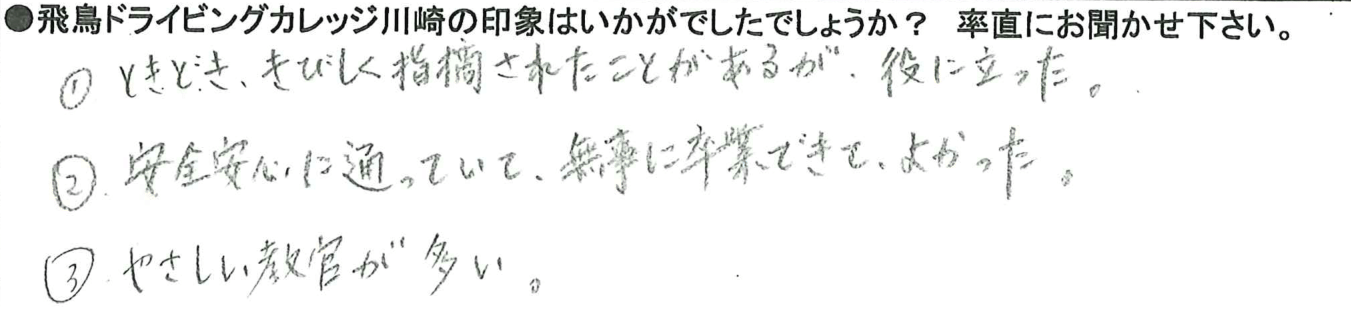 ●飛鳥ドライビングカレッジ川崎の印象はいかがでしたでしょうか？ 率直にお聞かせ下さい。
① ときどき、きびしく指摘されたことがあるが、役に立った。
② 安全安心に通っていて、無事に卒業できて、よかった。
③ やさしい教官が多い。